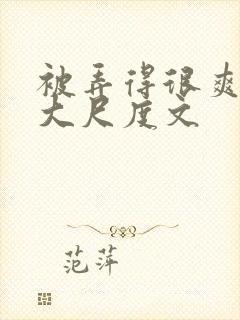 被弄得很爽
大尺度文
范萍